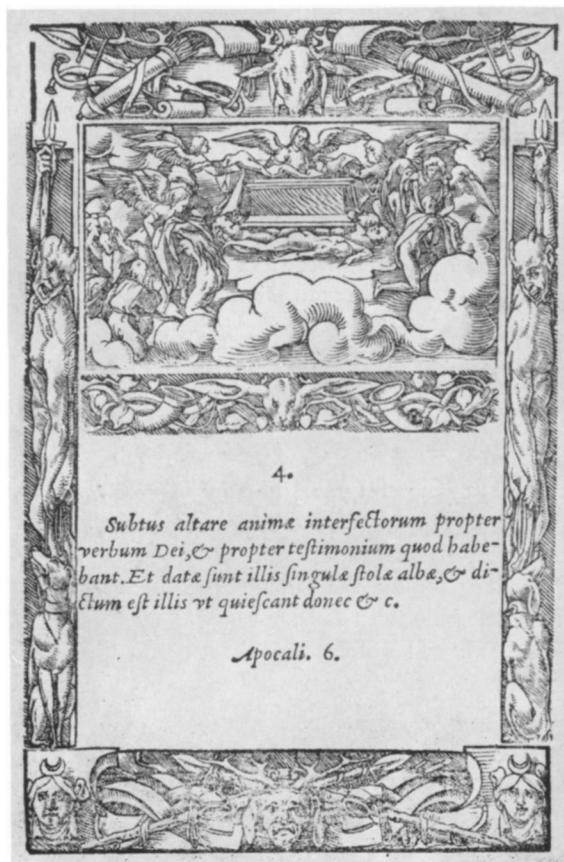 4.
Subtus altare animæ interfectorum propter
verbum Dei,& propter testimonium quod habe-
bant.Et datæ sunt illis singulæ stolæ albæ,& di-
ctum est illis vt quiescant donec & c.
Apocali. 6.